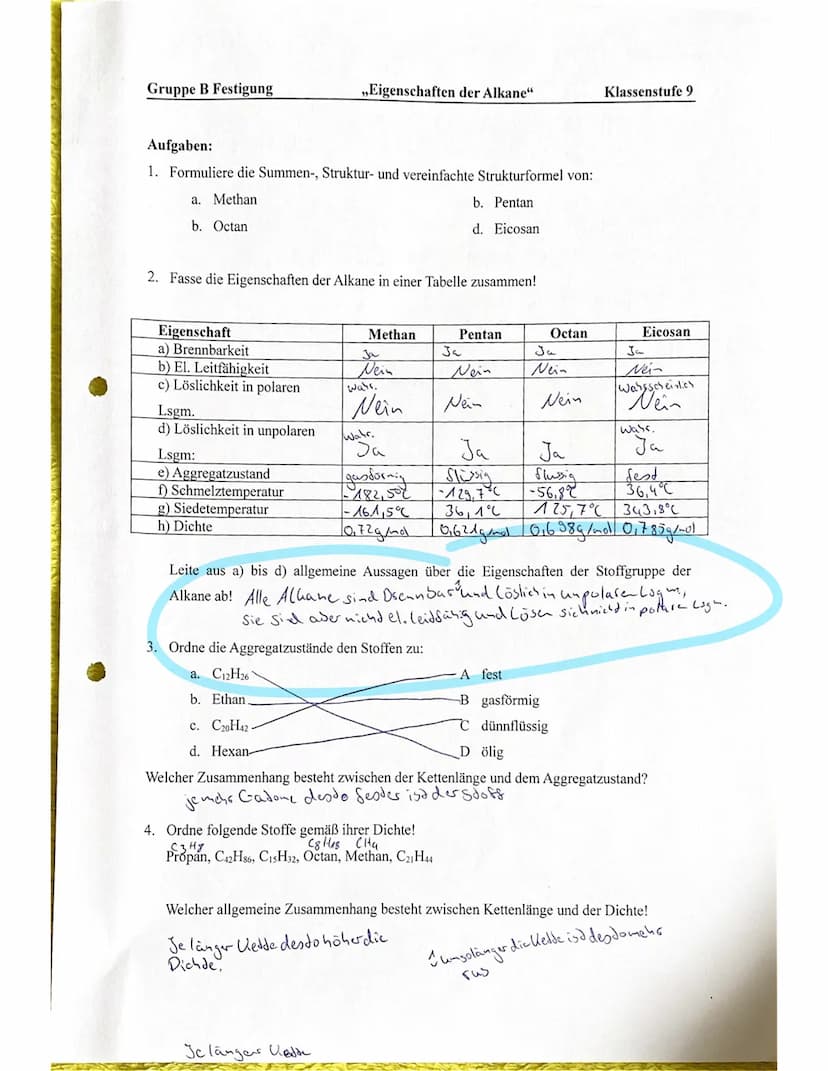 Gruppe B Festigung „Eigenschaften der Alkane“ Klassenstufe 9
Aufgaben:
1. Formuliere die Summen-, Struktur- und vereinfachte Strukturformel von:
a. Methan b. Pentan
b. Octan d. Eicosan
2. Fasse die Eigenschaften der Alkane in einer Tabelle zusammen!
Eigenschaft Methan Pentan Octan Eicosan
a) Brennbarkeit Ja Ja Ja Ja
b) El. Leitfähigkeit Nein Nein Nein Nein
c) Löslichkeit in polaren wahr. Wahrscheinlich
Lsgm. Nein Nein Nein Nein
d) Löslichkeit in unpolaren wahr. wahr.
Lsgm: Ja Ja Ja Ja
e) Aggregatzustand gasförmig flüssig flussig fesd
f) Schmelztemperatur -182,5°C -129,7°C -56,8°C 36,4°C
g) Siedetemperatur -161,5°C 36,1°C 125,7°C 343,8°C
h) Dichte 0,72g/mol 0,621g/mol 0,698g/mol 0,785g/mol
Leite aus a) bis d) allgemeine Aussagen über die Eigenschaften der Stoffgruppe der
Alkane ab! Alle Alkane sind Brennbar und Löslich in unpolaren Losgm,
sie sind aber nichd el. leidfähig und Lösen sich nichd in polare Losgm.
3. Ordne die Aggregatzustände den Stoffen zu:
a. C₁₂H₂₆ A fest
b. Ethan B gasförmig
c. C₂₀H₄₂ C dünnflüssig
d. Hexan D ölig
Welcher Zusammenhang besteht zwischen der Kettenlänge und dem Aggregatzustand?
je mehr desdo fesder isd der Sdoff
4. Ordne folgende Stoffe gemäß ihrer Dichte!
C3H8 C8H18 CH4
Propan, C₄₂H₈₆, C₁₅H₃₂, Octan, Methan, C₂₁H₄₄
Welcher allgemeine Zusammenhang besteht zwischen Kettenlänge und der Dichte!
Je länger Kedde desdo höher die
Dichde.
umso länger die Kedde isd desdo mehr
rus
Je länger Kedde